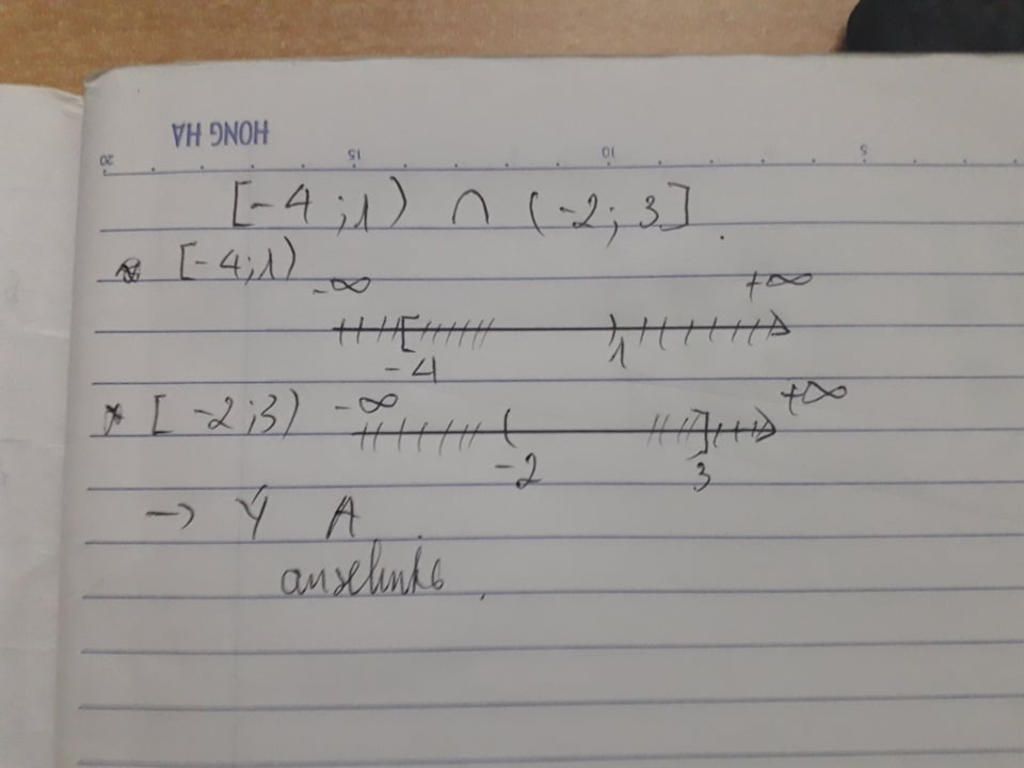 HONG HA
20 15 10 5
[-4;1) ∩ (-2; 3]
[-4;1)
-∞ +∞
-4 1
* [-2;3) -∞ +∞
-2 3
→ Y A
anselinks